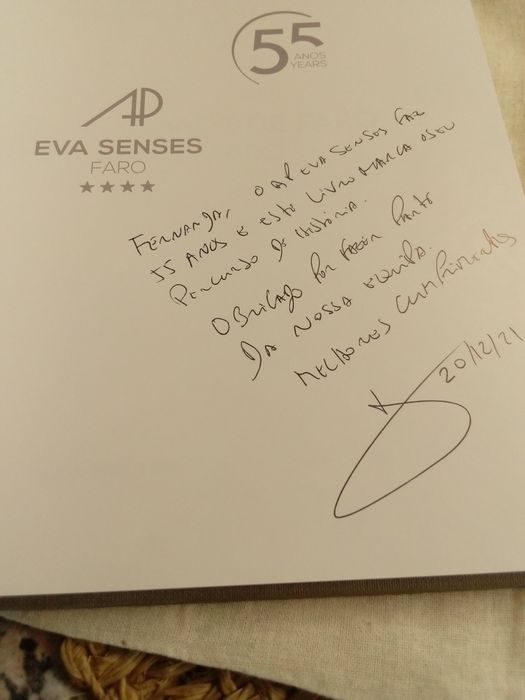 55
ANOS
YEARS
AP
EVA SENSES
FARO
FERNANDA, O AP EVA SENSES FAZ
55 ANOS E ESTE LIVRO MARCA O SEU
PERCURSO DE HISTÓRIA.
OBRIGADO POR FAZER PARTE
DA NOSSA EQUIPA.
MELHORES CUMPRIMENTOS
20/12/21